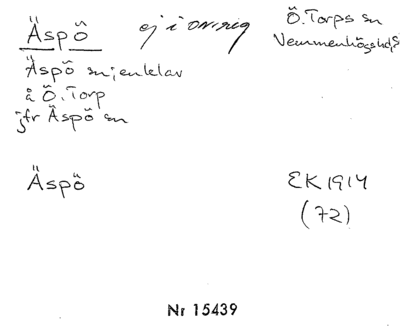 Äspö ej i omr.reg Ö. Torps sn
Vemmenhögs hd
Äspö sn; enklav
å Ö. Torp
jfr Äspö sn
Äspö EK 1914
(72)
Nr 15439